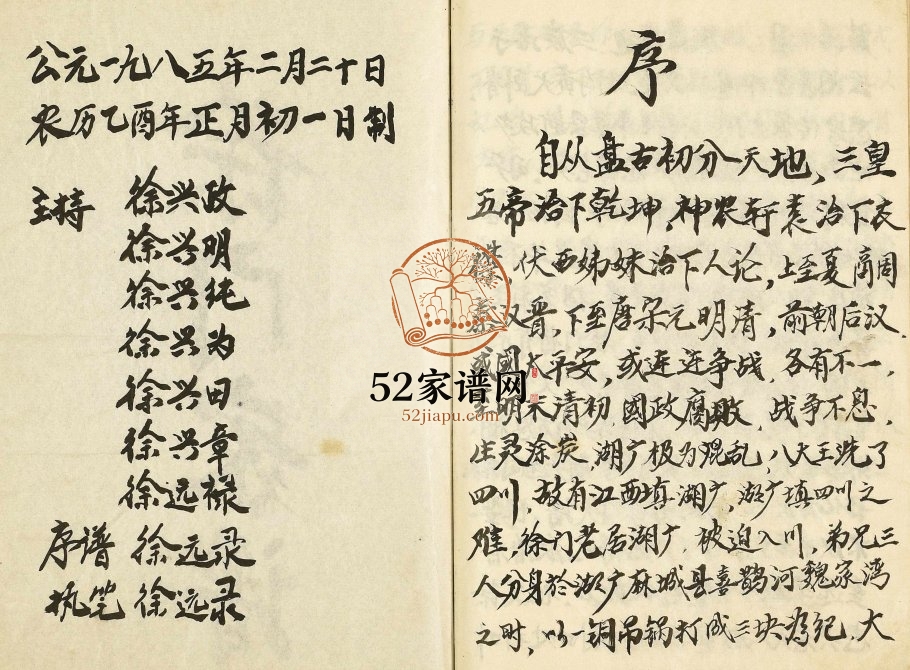 公元一九八五年二月二十日
农历乙酉年正月初一日制
主持 徐兴政
徐兴明
徐兴纯
徐兴为
徐兴田
徐兴章
徐远禄
序谱 徐远录
执笔 徐远录
序
自从盘古初分一天地，三皇
五帝治下乾坤，神农轩袁治下衣
，伏西姊妹治下人论，上至夏商周
秦汉晋，下至唐宋元明清，前朝后汉，
或國太平安，或连连争战，各有不一，
至明末清初，國政腐败，战争不息，
生灵涂炭，湖广极为混乱，八大王洗了
四川，故有江西填湖广，湖广填四川之
难，徐门老居湖广，被迫入川，弟兄三
人分身於湖广麻城县喜鹊河魏家湾
之时，以一铜吊锅打成三块为纪，大
52家谱网
52jiapu.com